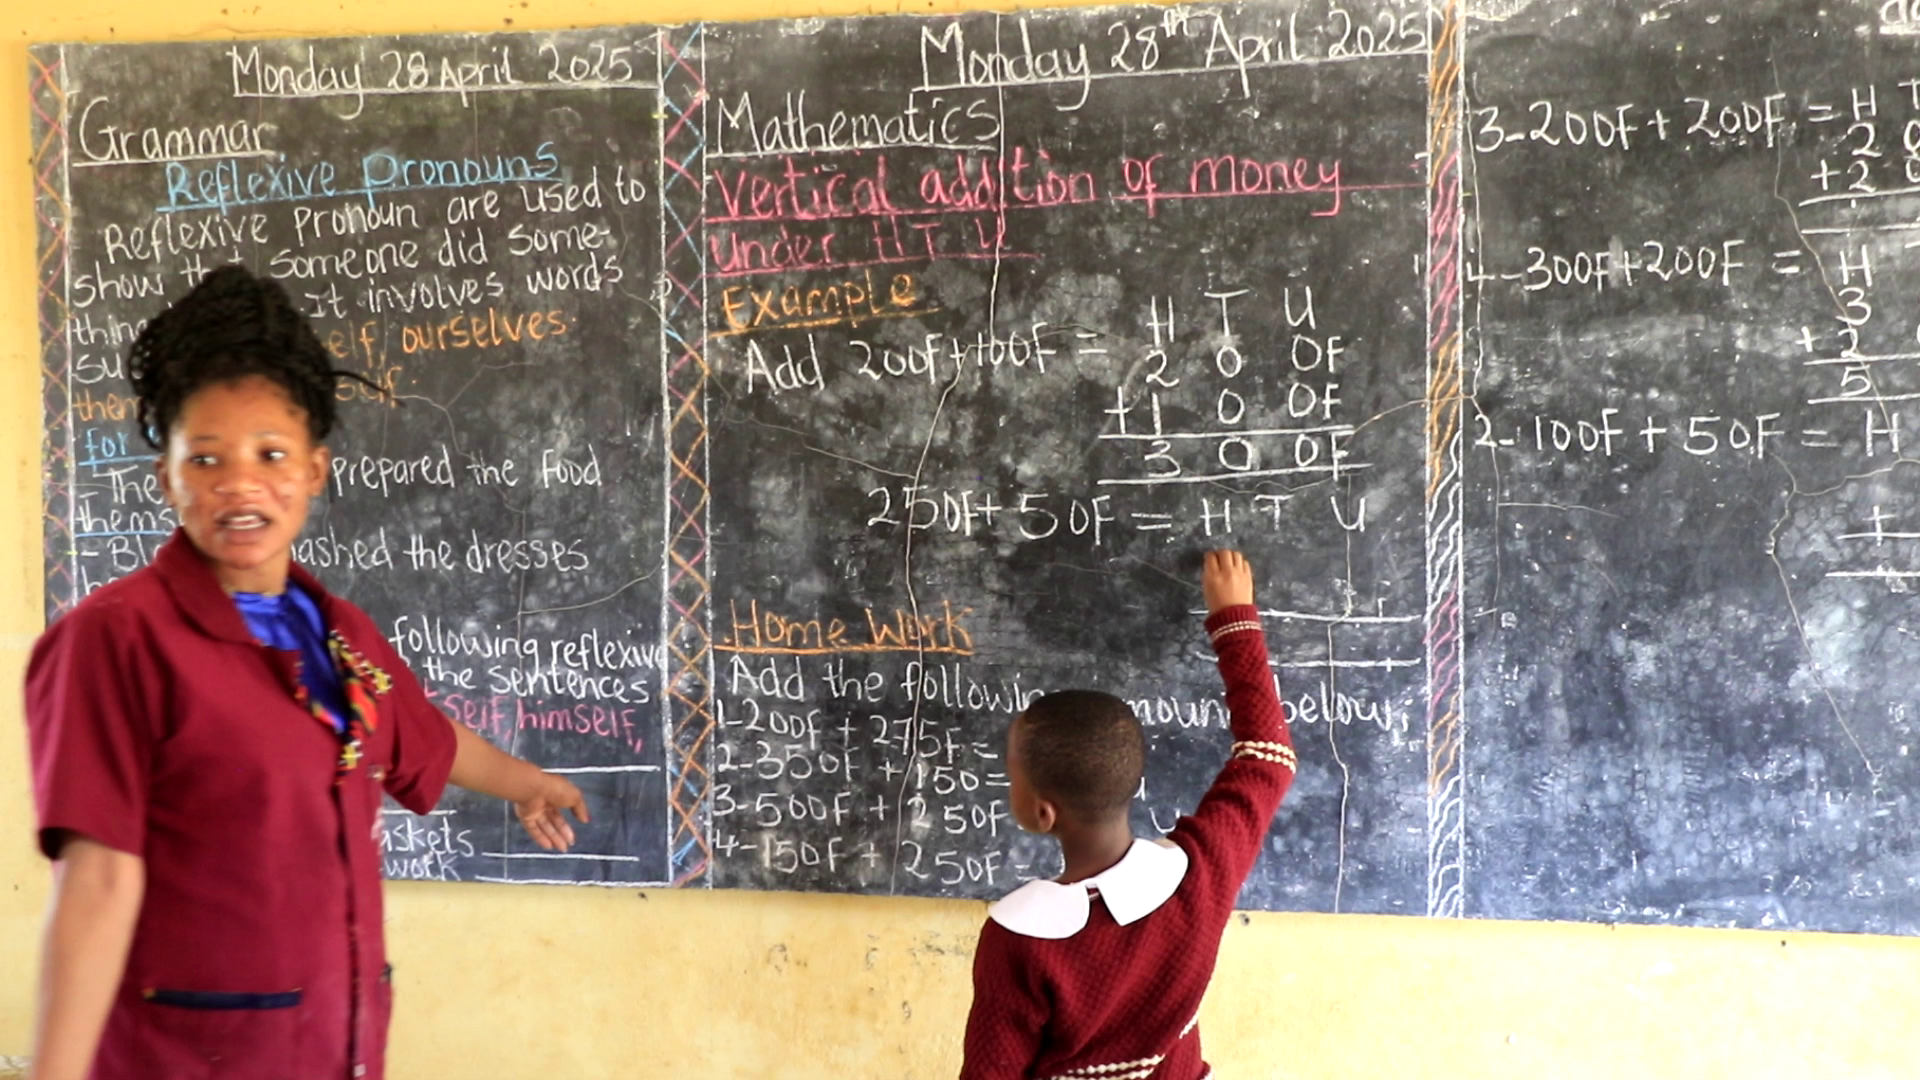 Monday 28 April 2025
Grammar
Reflexive Pronouns
Reflexive Pronoun are used to
show someone did some-
thing It involves words
self, ourselves.
self.
for
- The prepared the food
thems
- washed the dresses
following reflexive
the sentences
self, himself,
askets
work
Monday 28th April 2025
Mathematics
Vertical addition of money
under H T U
Example
Add 200F + 100F = H T U
2 0 0F
+ 1 0 0F
3 0 0F
250F + 50F = H T U
Home Work
Add the following mount below;
1-200F + 275F =
2-350F + 150 =
3-500F + 250F
4-150F + 250F =
3-200F + 200F = H T
2 0
+ 2 0
4-300F + 200F = H
3
+ 2
5
2-100F + 50F = H
+